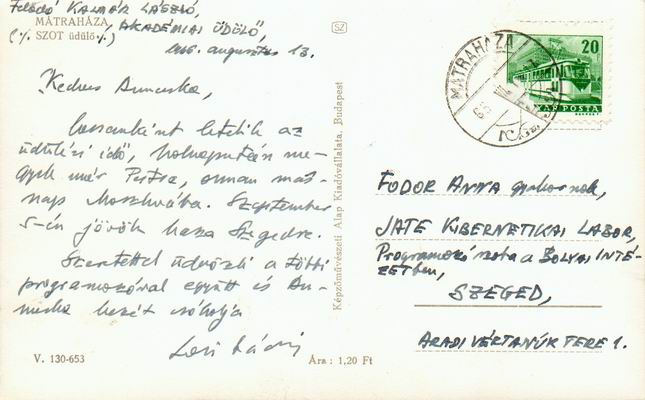 Feladó KALMÁR LÁSZLÓ,
MÁTRAHÁZA
SZOT üdülő
AKADÉMIAI ÜDÜLŐ,
1966. augusztus 13.
Kedves Annuska,
lassanként letelik az
üdülési idő, holnapután me-
gyek már Pestre, onnan más-
nap Moszkvába. Szeptember
5-én jövök haza Szegedre.
Szeretettel üdvözli a többi
programozóval együtt és An-
nuska kezét csókolja
Laci bácsi
V. 130-653
Ára: 1,20 Ft
Képzőművészeti Alap Kiadóvállalata, Budapest
SZ
MÁTRAHÁZA
20
MAGYAR POSTA
FODOR ANNA gyakornok,
JATE KIBERNETIKAI LABOR,
Programozó csoportja a BOLYAI INTÉ-
ZETBEN,
SZEGED,
ARADI VÉRTANÚK TERE 1.